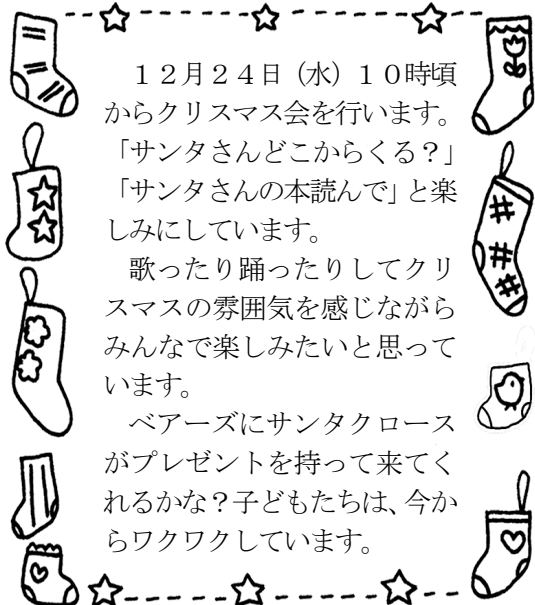 １２月２４日（水）１０時頃
からクリスマス会を行います。
「サンタさんどこからくる？」
「サンタさんの本読んで」と楽
しみにしています。
　歌ったり踊ったりしてクリ
スマスの雰囲気を感じながら
みんなで楽しみたいと思って
います。
　ベアーズにサンタクロース
がプレゼントを持って来てく
れるかな？子どもたちは、今か
らワクワクしています。